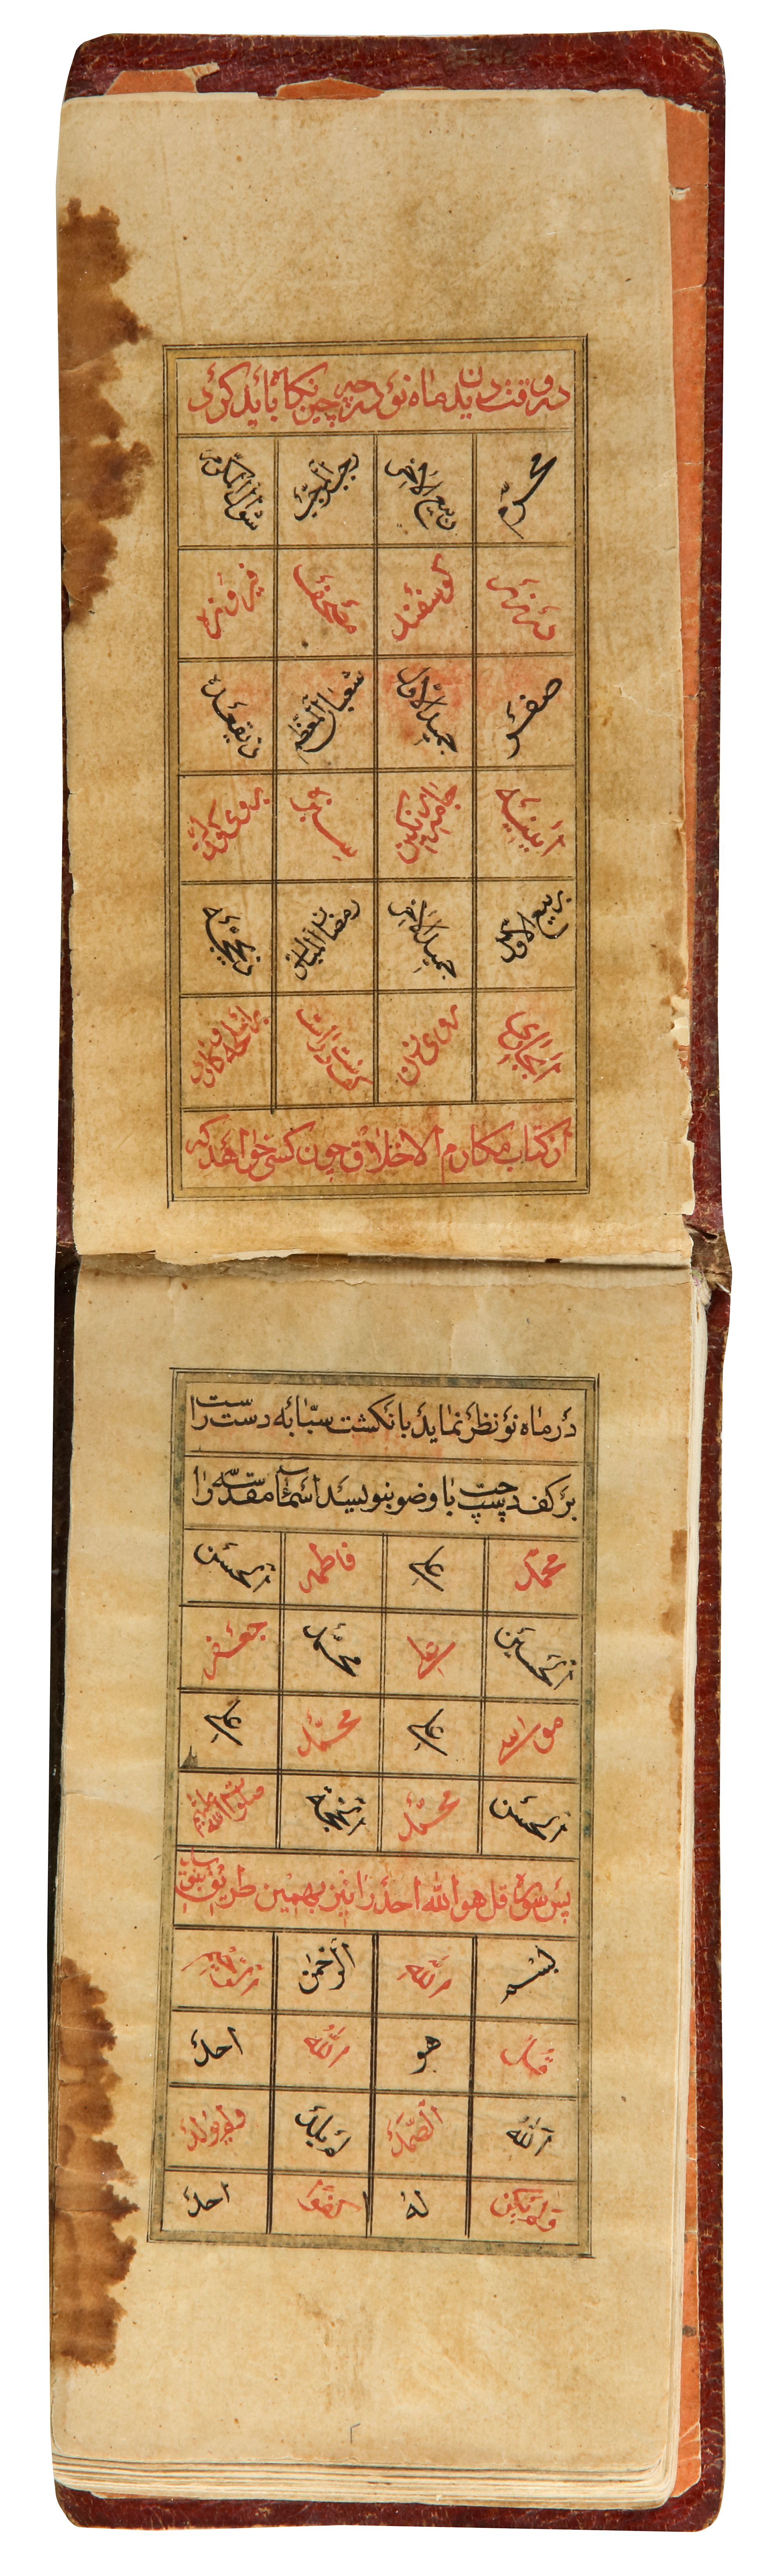 در وقت دیدن ماه نو در چه چیز نگاه باید کرد
محرم ربیع الاخر رجب المرجب شوال المکرم
در زر گوسفند مصحف فیروزه
صفر جمید الاول شعبان المعظم ذیقعده
آیینه سبزه بروی کودک
ربیع الاول جمید الاخر رمضان المبارک ذیحجه
آب جاری روی زن
از کتاب مکارم الاخلاق چون کسی خواهد که
در ماه نو نظر نماید بانگشت سبابه دست راست
بر کف دست چپ با وضو بنویسد اسماء مقدسه را
محمد علی فاطمه الحسن
الحسین علی محمد جعفر
موسی علی محمد علی
الحسن محمد الحجة صلوات الله علیهم
پس سوره قل هو الله احد را نیز بهمین طریق بنویسد
بسم الله الرحمن الرحیم
قل هو الله احد
الله الصمد لم یلد ولم یولد
ولم یکن له کفوا احد
۲